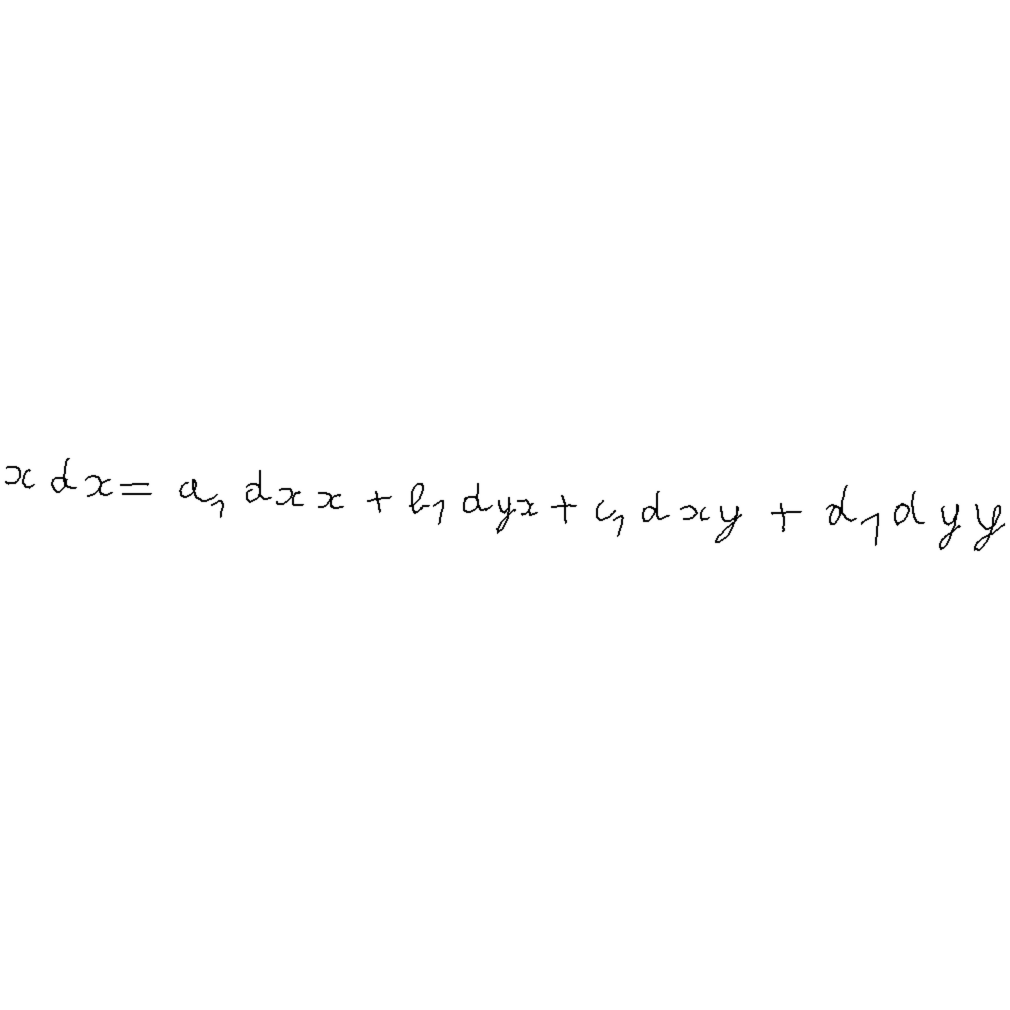 x dx = a₁ dx x + b₁ dyx + c₁ dxy + d₁ dyy